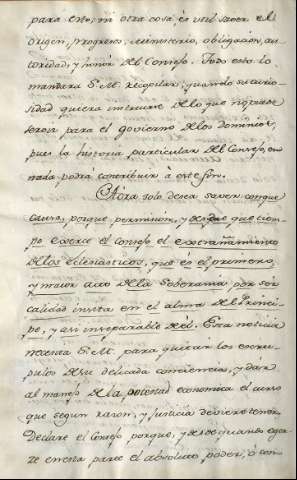 para esto, ni otra cosa, es util saver el
origen, progreso, ministerio, obligacion, au
toridad, y honor del Consejo. Todo esto lo
mandará S. M. recopilar, quando su curio
sidad quiera instruirse de lo que
para el govierno de los dominios,
pues la historia particular del Consejo, en
nada podrá contribuir á este fin.
Aora solo desea saver con que
causa, porque permision, y desde que tiem
po exerce el Consejo el extrañamiento
de los eclesiasticos, que es el primero,
y maior acto de la Soberania por ser
calidad insita en el alma del Princi
pe, y asi inseparable de él. Esta noticia
necesita S. M. para quitar los escru
pulos de su delicada conciencia, y dár
al manejo de la potestad economica el curso
que segun razon, y Justicia deviere tener.
Declare el Consejo porque, y desde quando eger
ze en esta parte el absoluto poder, ó con